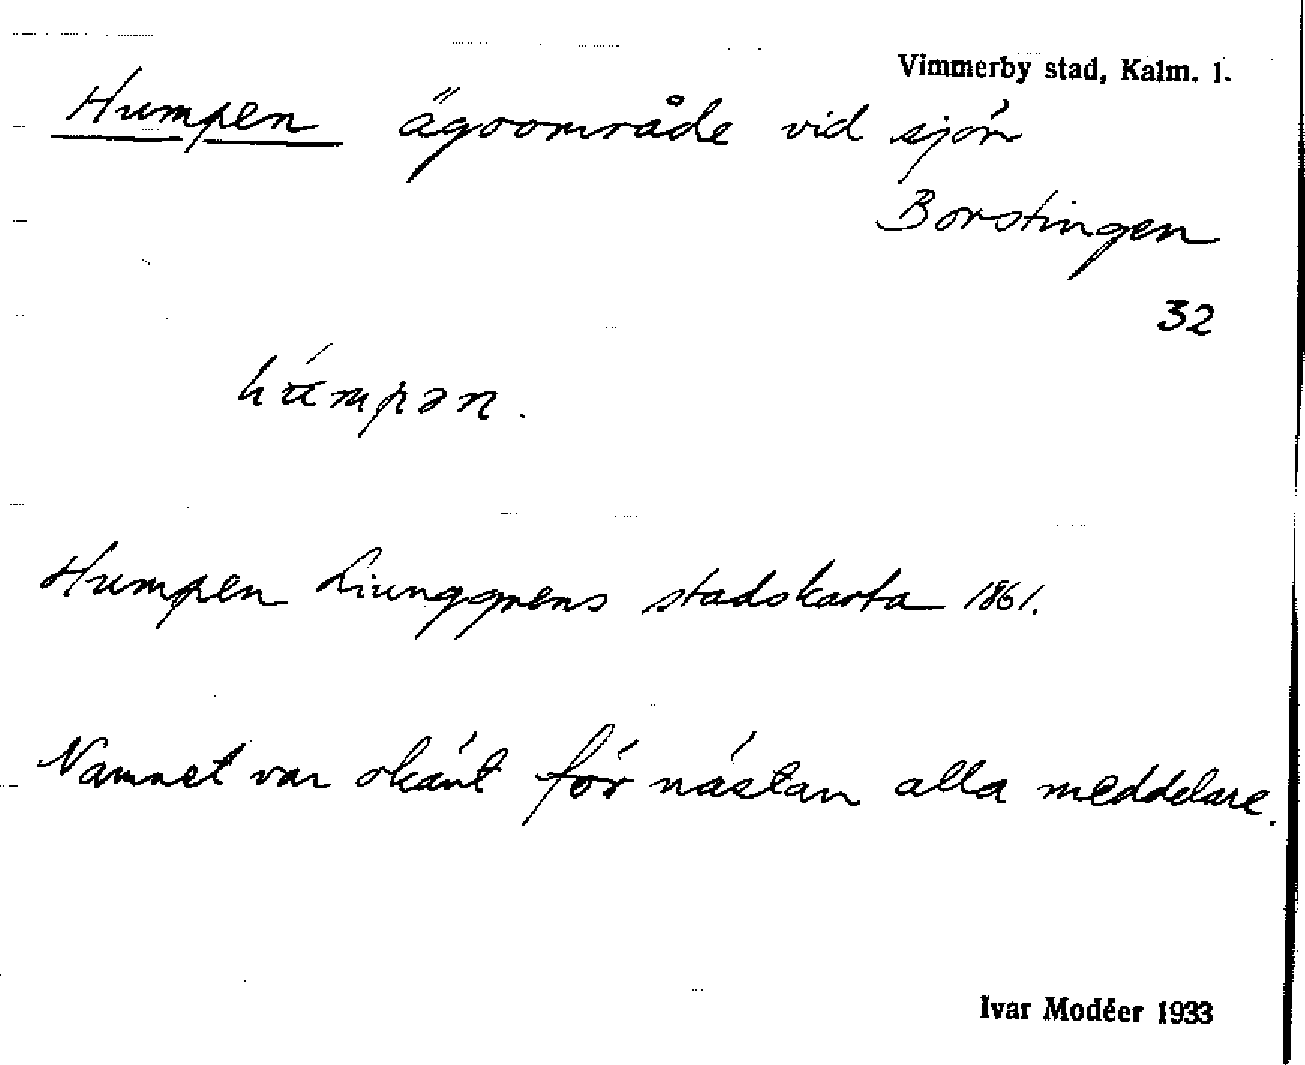 Vimmerby stad, Kalm. l.
Humpen ägoområde vid sjön
Borstingen
32
Humpen Liunggrens stadskarta 1861.
Namnet var okänt för nästan alla meddelare.
Ivar Modéer 1933